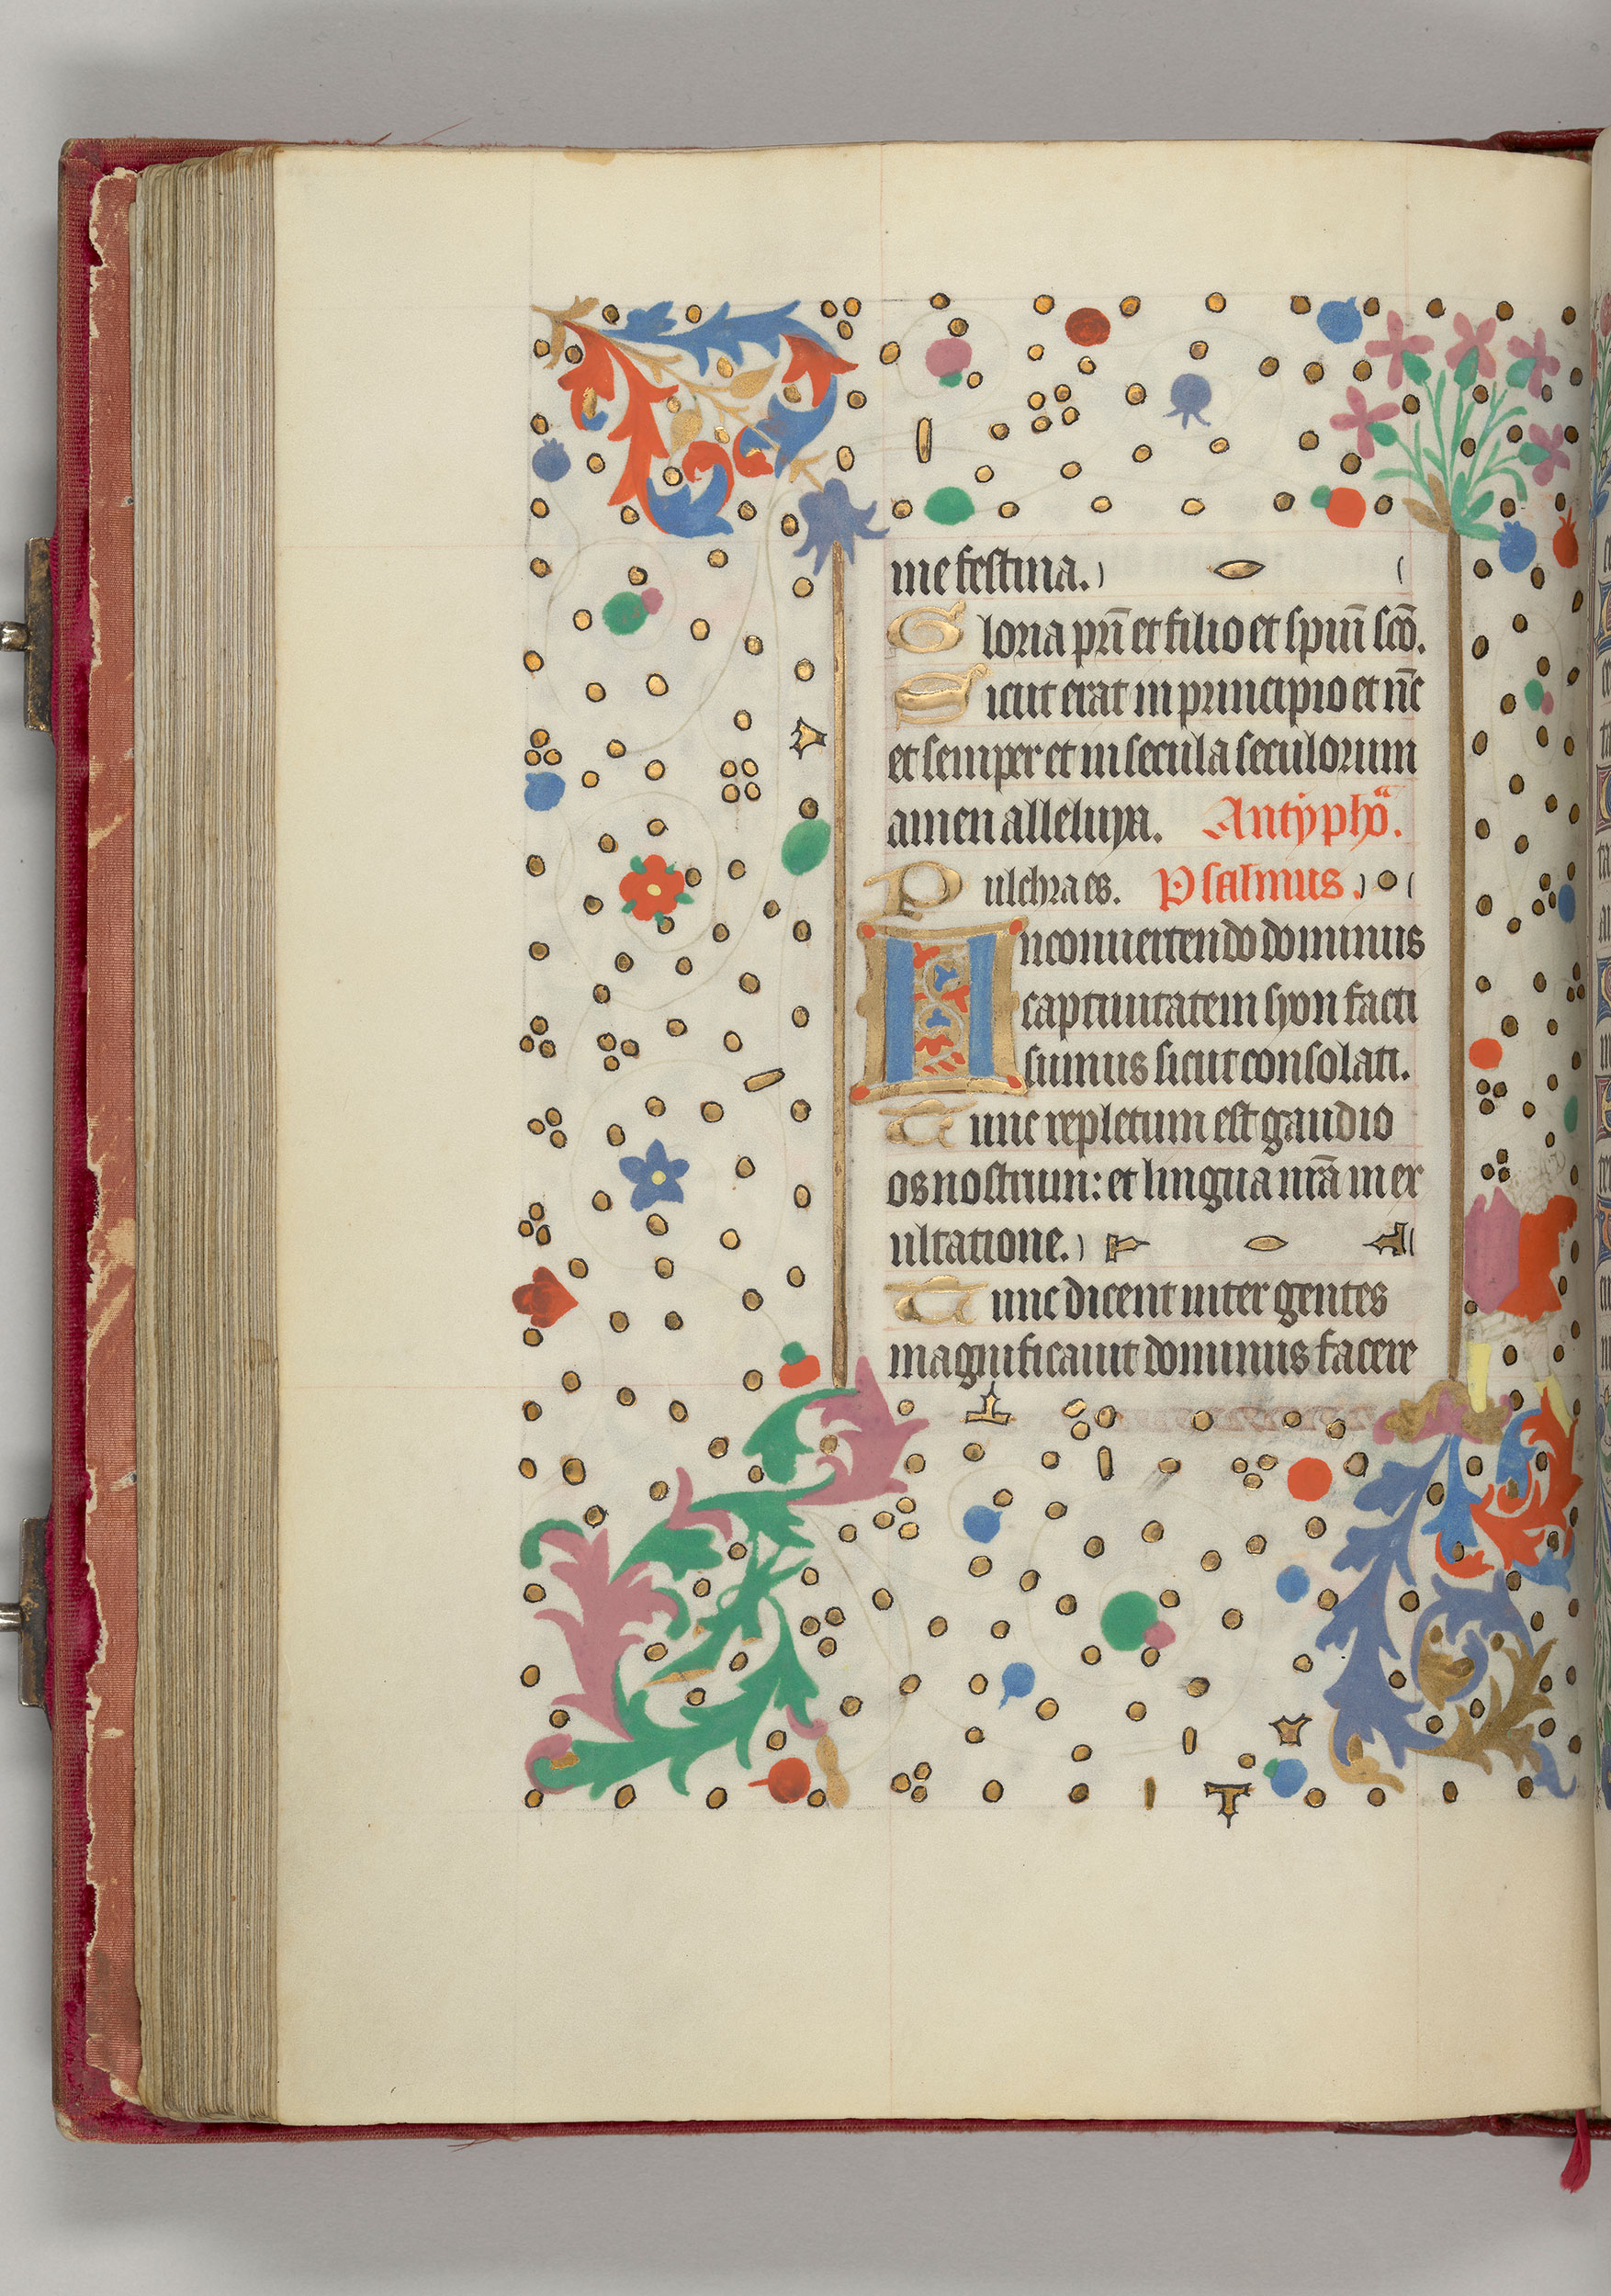 me festina.
Gloria pr̄i et filio et spūi scō.
Sicut erat in principio et nūc
et semper et in secula seculorum
amen alleluya. Antyphoᵃ.
Pulchra es. Psalmus.
In conuertendo dominus
captiuitatem syon facti
sumus sicut consolati.
Tunc repletum est gaudio
os nostrum: et lingua nrā in ex
ultatione.
Tunc dicent inter gentes
magnificauit dominus facere